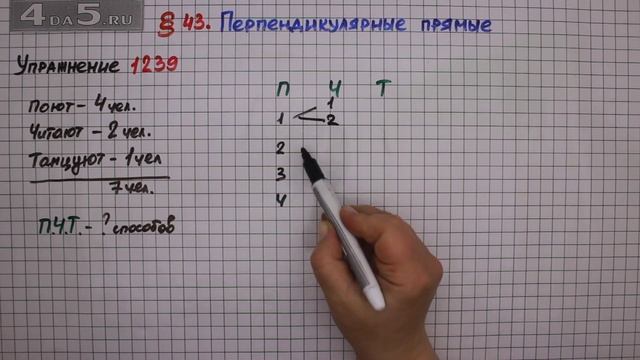 4DA5.RU
§ 43. Перпендикулярные прямые
Упражнение 1239
Поют - 4 чел.
Читают - 2 чел.
Танцуют - 1 чел
7 чел.
П.Ч.Т. - ? способов
П Ч Т
1
1 2
2
3
4